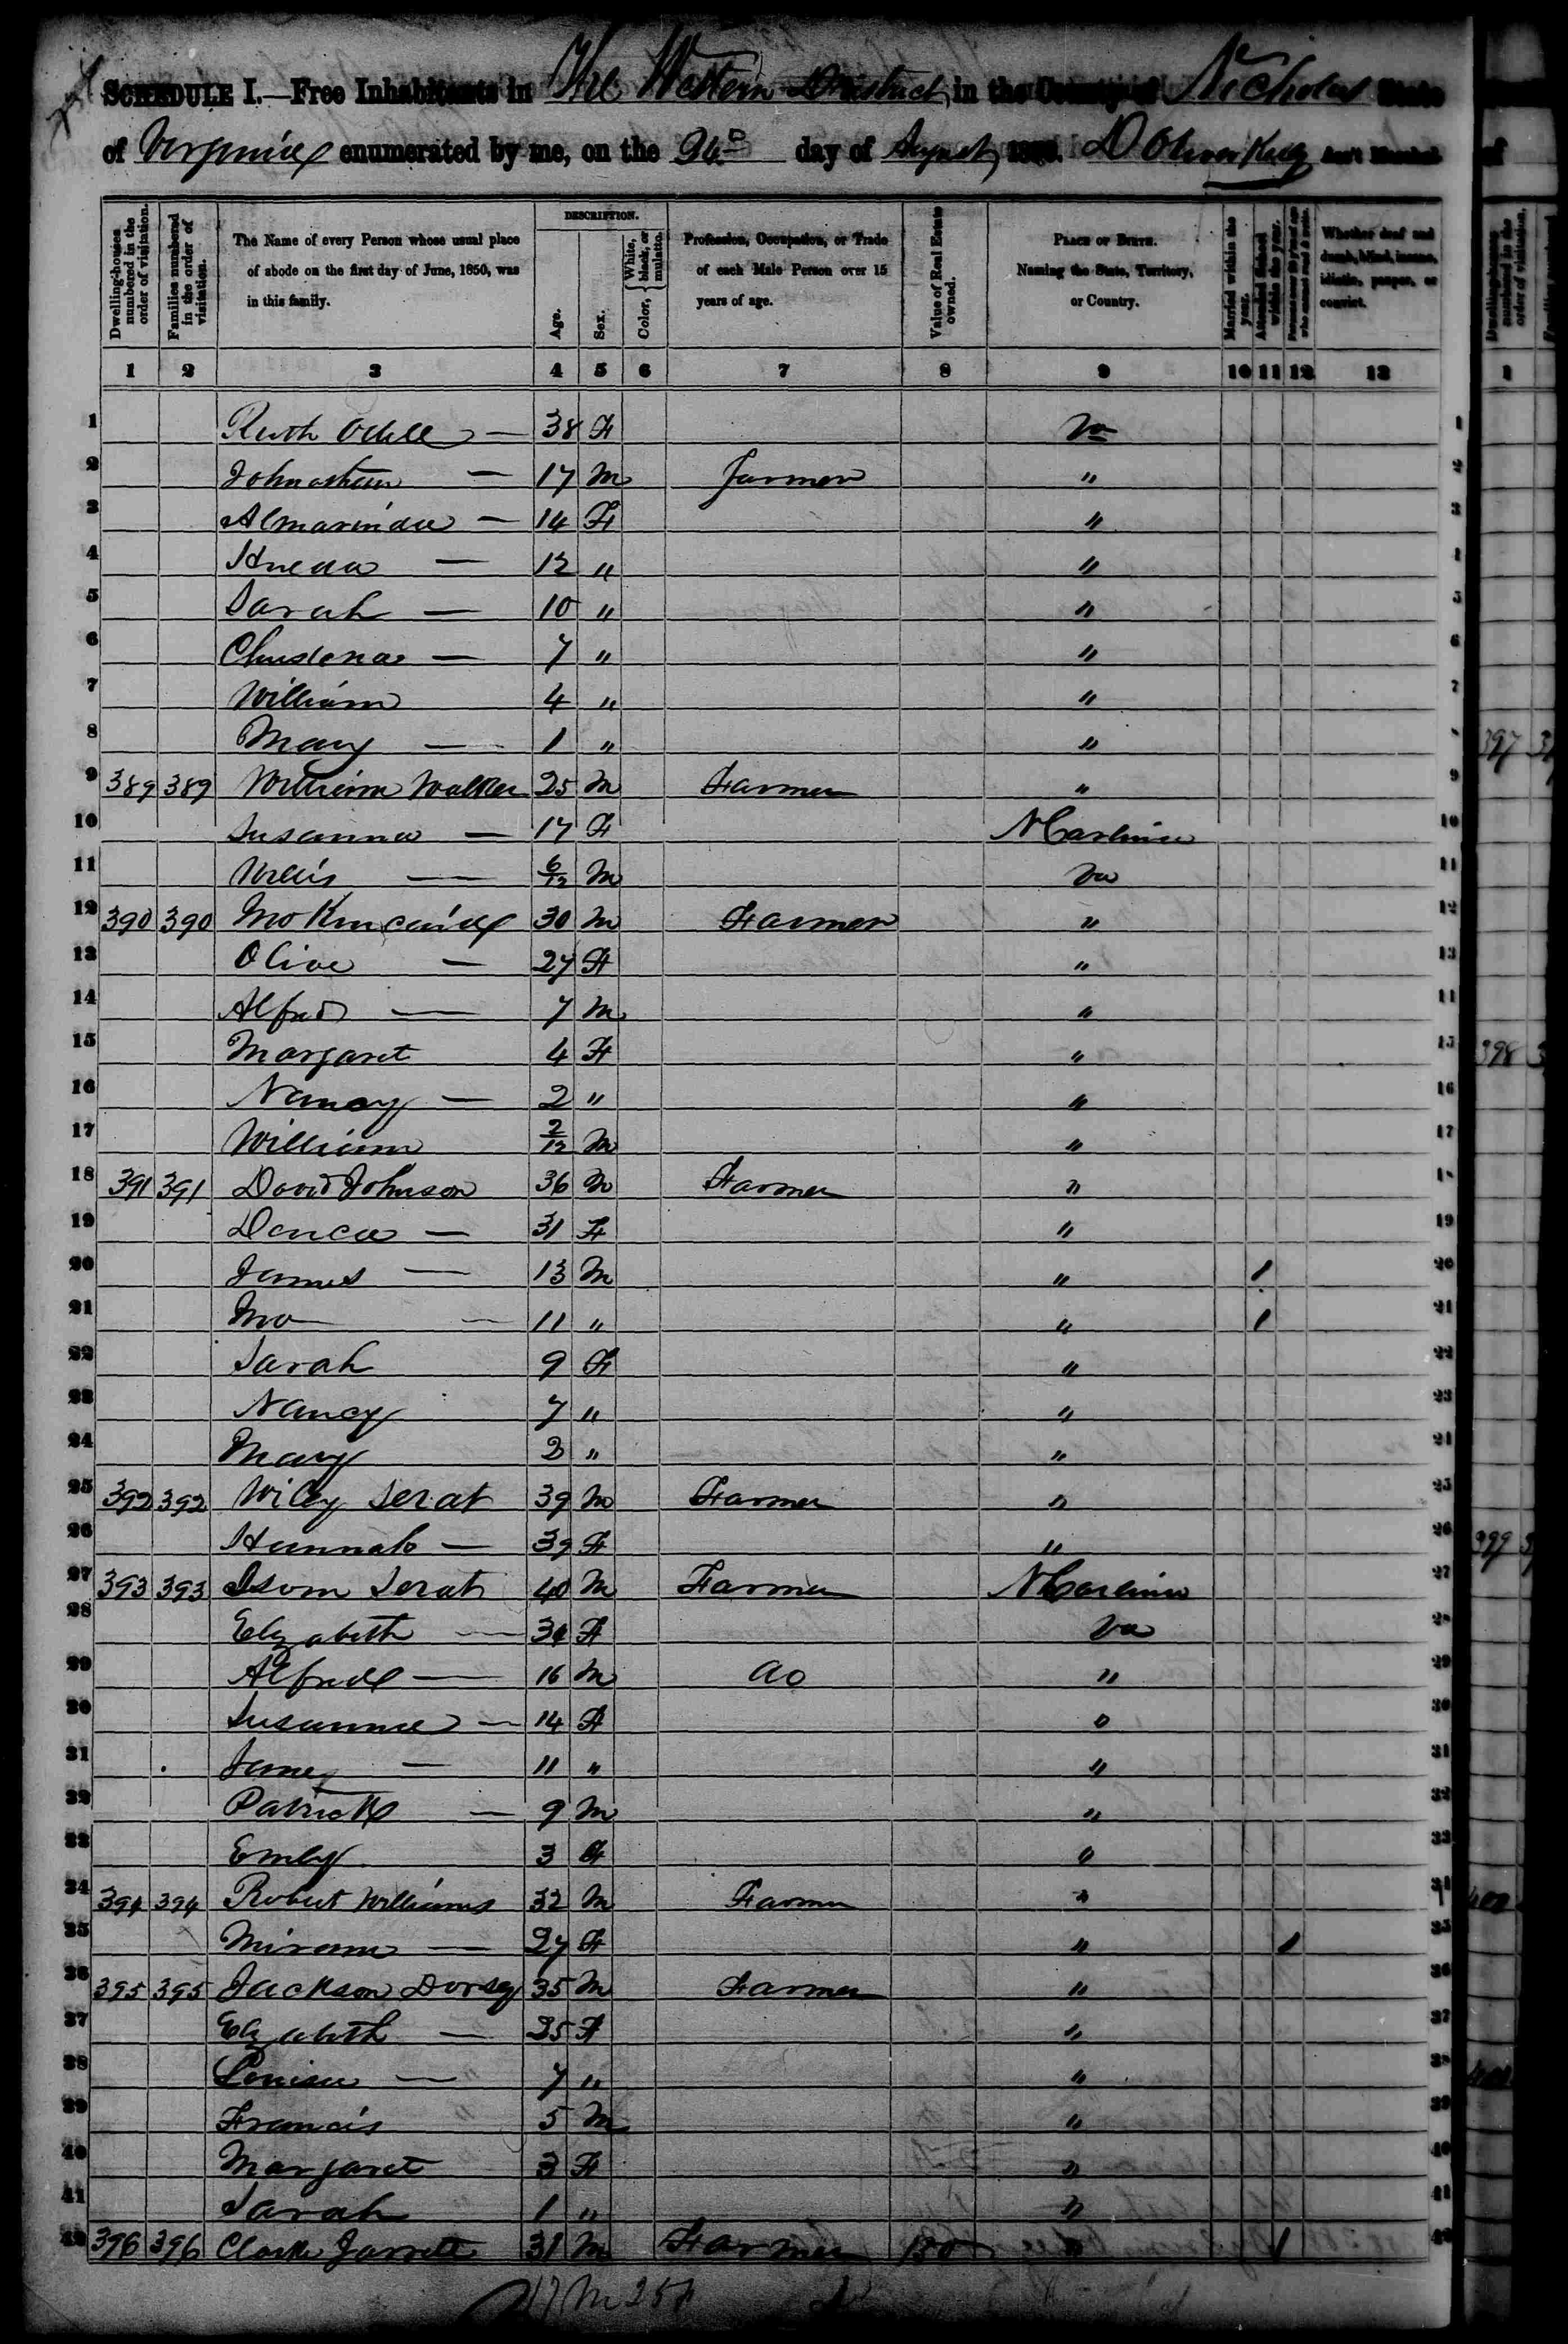 SCHEDULE I.—Free Inhabitants in The Western District in the County of Nicholas State
of Virginia enumerated by me, on the day of August 1850. Ass't Marshal.
Dwelling-houses numbered in the order of visitation.
Families numbered in the order of visitation.
The Name of every Person whose usual place of abode on the first day of June, 1850, was in this family.
DESCRIPTION.
Age.
Sex.
Color, { White, black, or mulatto.
Profession, Occupation, or Trade of each Male Person over 15 years of age.
Value of Real Estate owned.
PLACE OF BIRTH. Naming the State, Territory, or Country.
Married within the year.
Attended School within the year.
Persons over 20 y'rs of age who cannot read & write.
Whether deaf and dumb, blind, insane, idiotic, pauper, or convict.
1 2 3 4 5 6 7 8 9 10 11 12 13
1 Ruth Odell — 38 F Va
2 Johnathan — 17 M Farmer "
3 Almarinda — 14 F "
4 — 12 " "
5 Sarah — 10 " "
6 — 7 " "
7 William 4 " "
8 Mary — 1 " "
9 389 389 William Walker 25 M Farmer "
10 Susanna — 17 F N Carolina
11 Willis — 6/12 M Va
12 390 390 Jno Kincaid 30 M Farmer "
13 Olive — 27 F "
14 Alfred — 7 M "
15 Margaret 4 F "
16 Nancy — 2 " "
17 William 2/12 M "
18 391 391 David Johnson 36 M Farmer "
19 — 31 F "
20 James — 13 M " 1
21 Jno — 11 " " 1
22 Sarah 9 F "
23 Nancy 7 " "
24 Mary 2 " "
25 392 392 Wiley Serat 39 M Farmer "
26 Hannah — 39 F "
27 393 393 Isom Serat 40 M Farmer N Carolina
28 Elizabeth — 34 F Va
29 Alfred — 16 M do "
30 Susanna — 14 F "
31 Jane — 11 " "
32 Patrick — 9 M "
33 Emly 3 F "
34 394 394 Robert Williams 32 M Farmer "
35 Miriam — 27 F " 1
36 395 395 Jackson Dorsey 35 M Farmer "
37 Elizabeth — 35 F "
38 Louisa — 7 " "
39 Francis 5 M "
40 Margaret 3 F "
41 Sarah 1 " "
42 396 396 Clark Jarrett 31 M Farmer 150 " 1
17 M 25 F
397
398
399